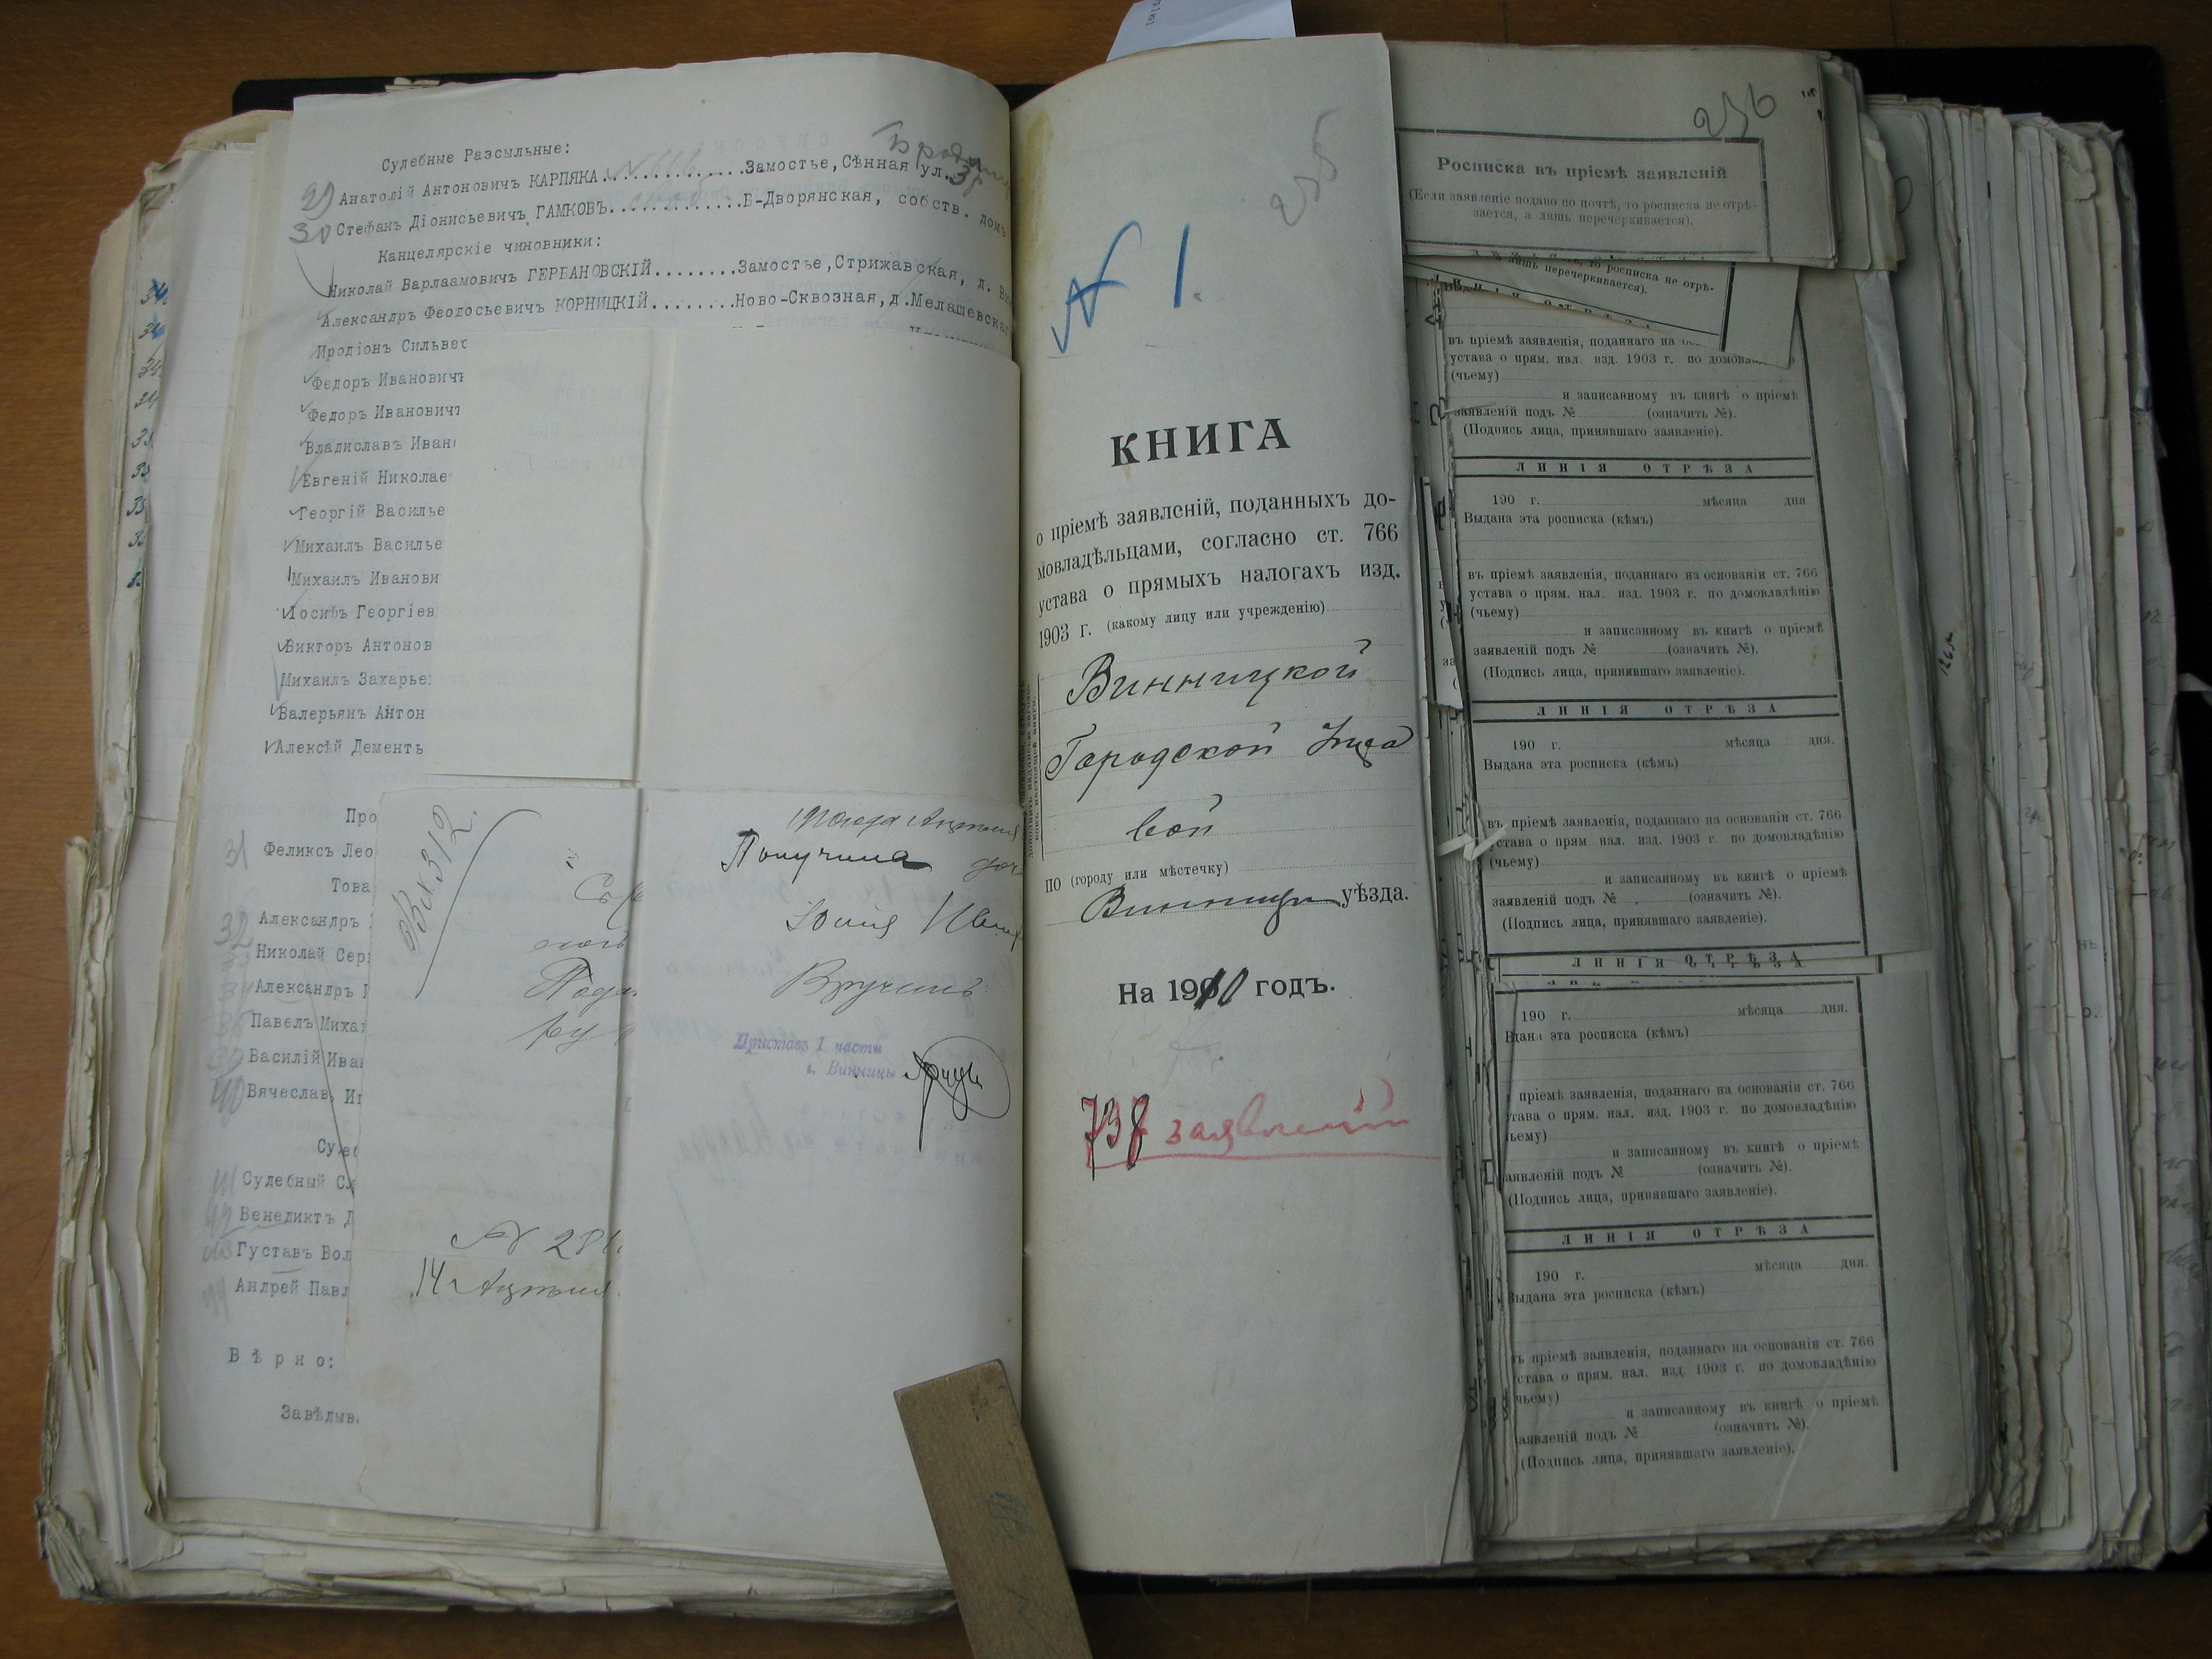 Судебные Разсыльные:
29 Анатолій Антоновичъ КАРПЯКА..............Замостье,Сѣнная ул.
30 Стефанъ Діонисьевичъ ГАМКОВЪ.............Б-Дворянская, собств. домъ
Канцелярскіе чиновники:
Николай Варлаамовичъ ГЕРБАНОВСКІЙ........Замостье,Стрижавская, д.
Александръ Феодосьевичъ КОРНИЦКІЙ........Ново-Сквозная,д.Мелашевска
Иродіонъ Сильвес
Федоръ Ивановичъ
Федоръ Ивановичъ
Владиславъ Ивано
Евгеній Николае
Георгій Василье
Михаилъ Василье
Михаилъ Иванови
Іосифъ Георгіев
Викторъ Антонов
Михаилъ Захарье
Валерьянъ Антон
Алексѣй Дементь
Про
31 Феликсъ Лео
Това
32 Александръ
33 Николай Сер
34 Александръ
Павелъ Миха
39 Василій Ива
40 Вячеслав
Суде
41 Судебный Сл
42 Венедиктъ Д
43 Густавъ Вол
44 Андрей Павл
Вѣрно:
Завѣдыв
Вх 312.
14 Апрѣля
Получила
Юлія
Вручилъ
Приставъ 1 части
г. Винницы
235
№ 1.
КНИГА
о пріемѣ заявленій, поданныхъ до-
мовладѣльцами, согласно ст. 766
устава о прямыхъ налогахъ изд.
1903 г. (какому лицу или учрежденію)
Винницкой
Городской
вой
ПО (городу или мѣстечку)
Винницы уѣзда.
На 1910 годъ.
заявленій
236
Росписка въ пріемѣ заявленій
(Если заявленіе подано по почтѣ, то росписка не отрѣ-
зается, а лишь перечеркивается).
росписка не отрѣ-
лишь перечеркивается).
въ пріемѣ заявленія, поданнаго на
устава о прям. нал. изд. 1903 г. по домовла
(чьему)
и записанному въ книгѣ о пріемѣ
заявленій подъ № (означить №).
(Подпись лица, принявшаго заявленіе).
ЛИНІЯ ОТРѢЗА
190 г. мѣсяца дня.
Выдана эта росписка (кѣмъ)
въ пріемѣ заявленія, поданнаго на основаніи ст. 766
устава о прям. нал. изд. 1903 г. по домовладѣнію
(чьему)
и записанному въ книгѣ о пріемѣ
заявленій подъ № (означить №).
(Подпись лица, принявшаго заявленіе).
ЛИНІЯ ОТРѢЗА
190 г. мѣсяца дня.
Выдана эта росписка (кѣмъ)
въ пріемѣ заявленія, поданнаго на основаніи ст. 766
устава о прям нал. изд. 1903 г. по домовладѣнію
(чьему)
и записанному въ книгѣ о пріемѣ
заявленій подъ № (означить №).
(Подпись лица, принявшаго заявленіе).
ЛИНІЯ ОТРѢЗА
190 г. мѣсяца дня.
дана эта росписка (кѣмъ)
пріемѣ заявленія, поданнаго на основаніи ст. 766
тава о прям. нал. изд. 1903 г. по домовладѣнію
ьему)
и записанному въ книгѣ о пріемѣ
аявленій подъ № (означить №).
(Подпись лица, принявшаго заявленіе).
ЛИНІЯ ОТРѢЗА
190 г. мѣсяца дня.
Выдана эта росписка (кѣмъ)
въ пріемѣ заявленія, поданнаго на основаніи ст. 766
устава о прям. нал. изд. 1903 г. по домовладѣнію
чьему)
и записанному въ книгѣ о пріемѣ
аявленій подъ № (означить №).
(Подпись лица, принявшаго заявленіе).